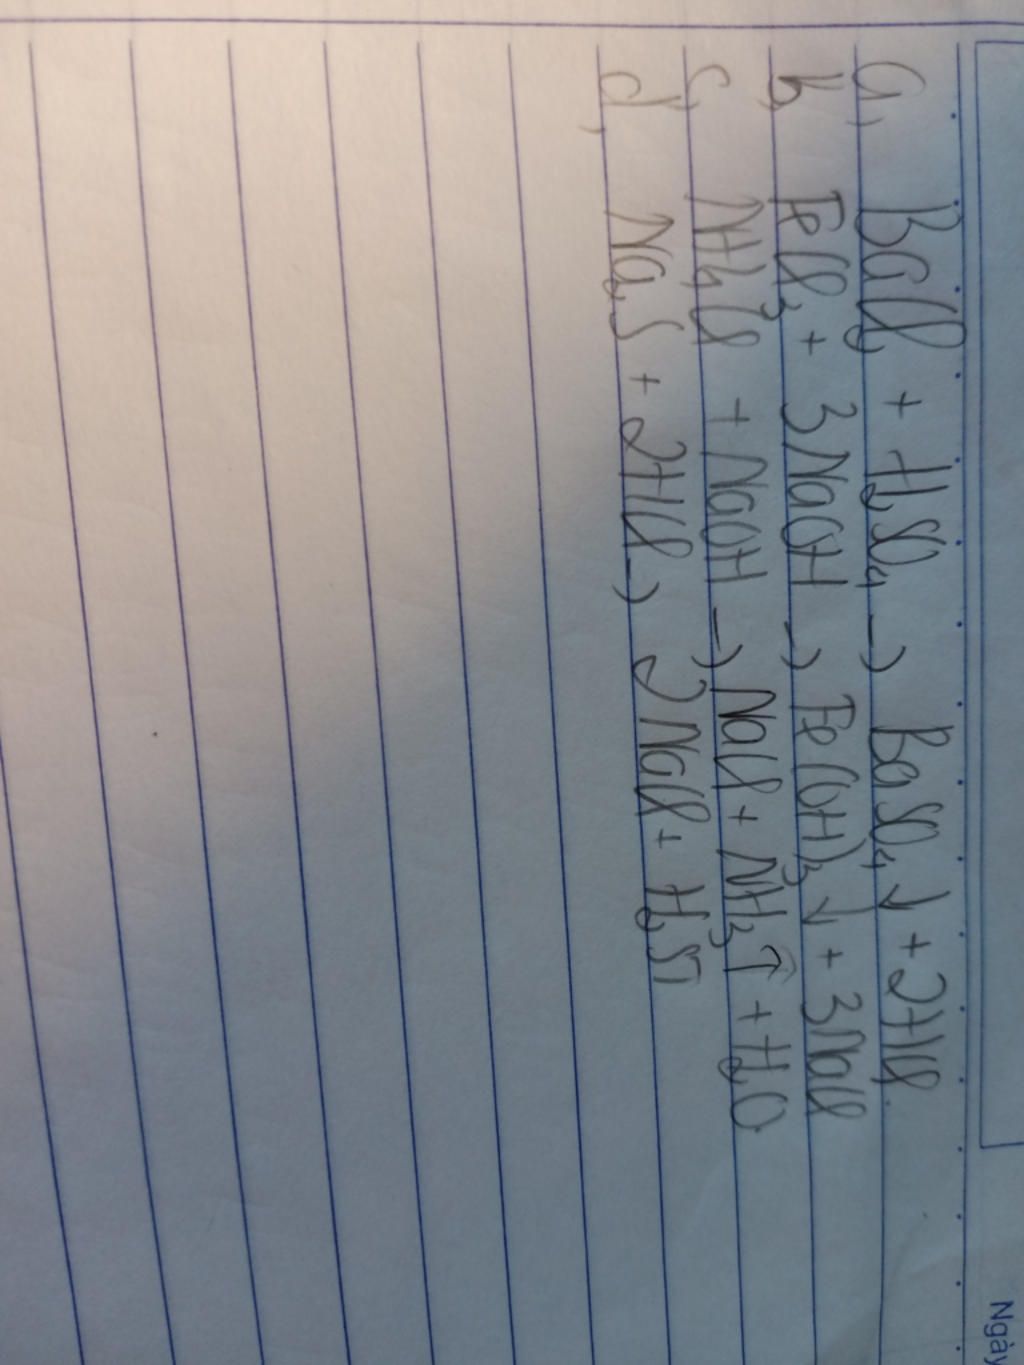 Ngày
a, BaCl₂ + H₂SO₄ → BaSO₄ ↓ + 2HCl
b, FeCl₃ + 3NaOH → Fe(OH)₃ ↓ + 3NaCl
c, NH₄Cl + NaOH → NaCl + NH₃ ↑ + H₂O
d, Na₂S + 2HCl → 2NaCl + H₂S↑